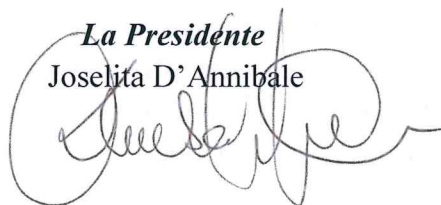 La Presidente
Joselita D’Annibale